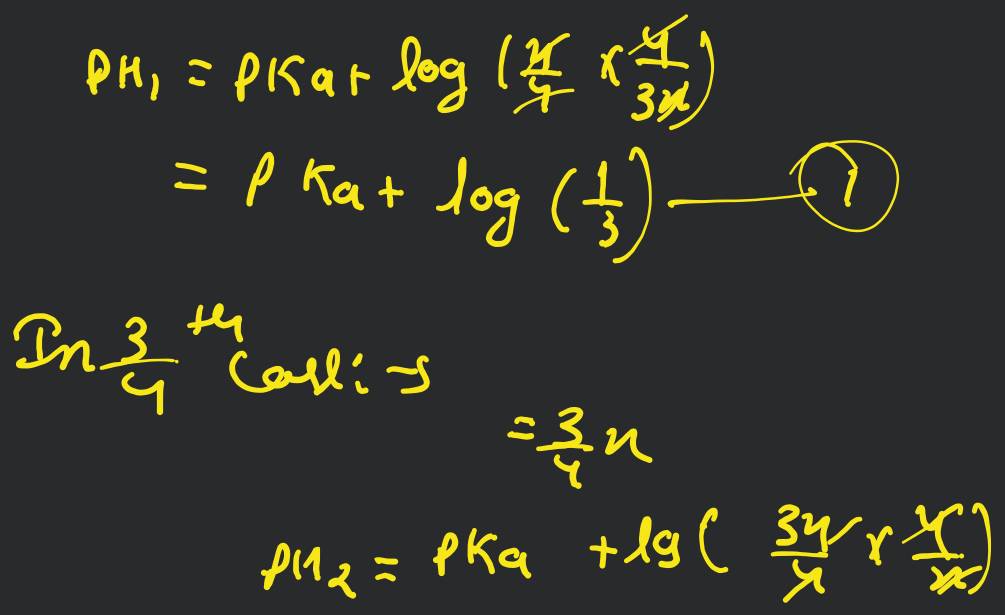 PH₁ = PKa + log (x/4 × 4/3x)
= PKa + log (1/3) — 1
In 3/4 th Case: →
= 3/4 x
PH₂ = PKa + lg ( 3x/4 × 4/x )